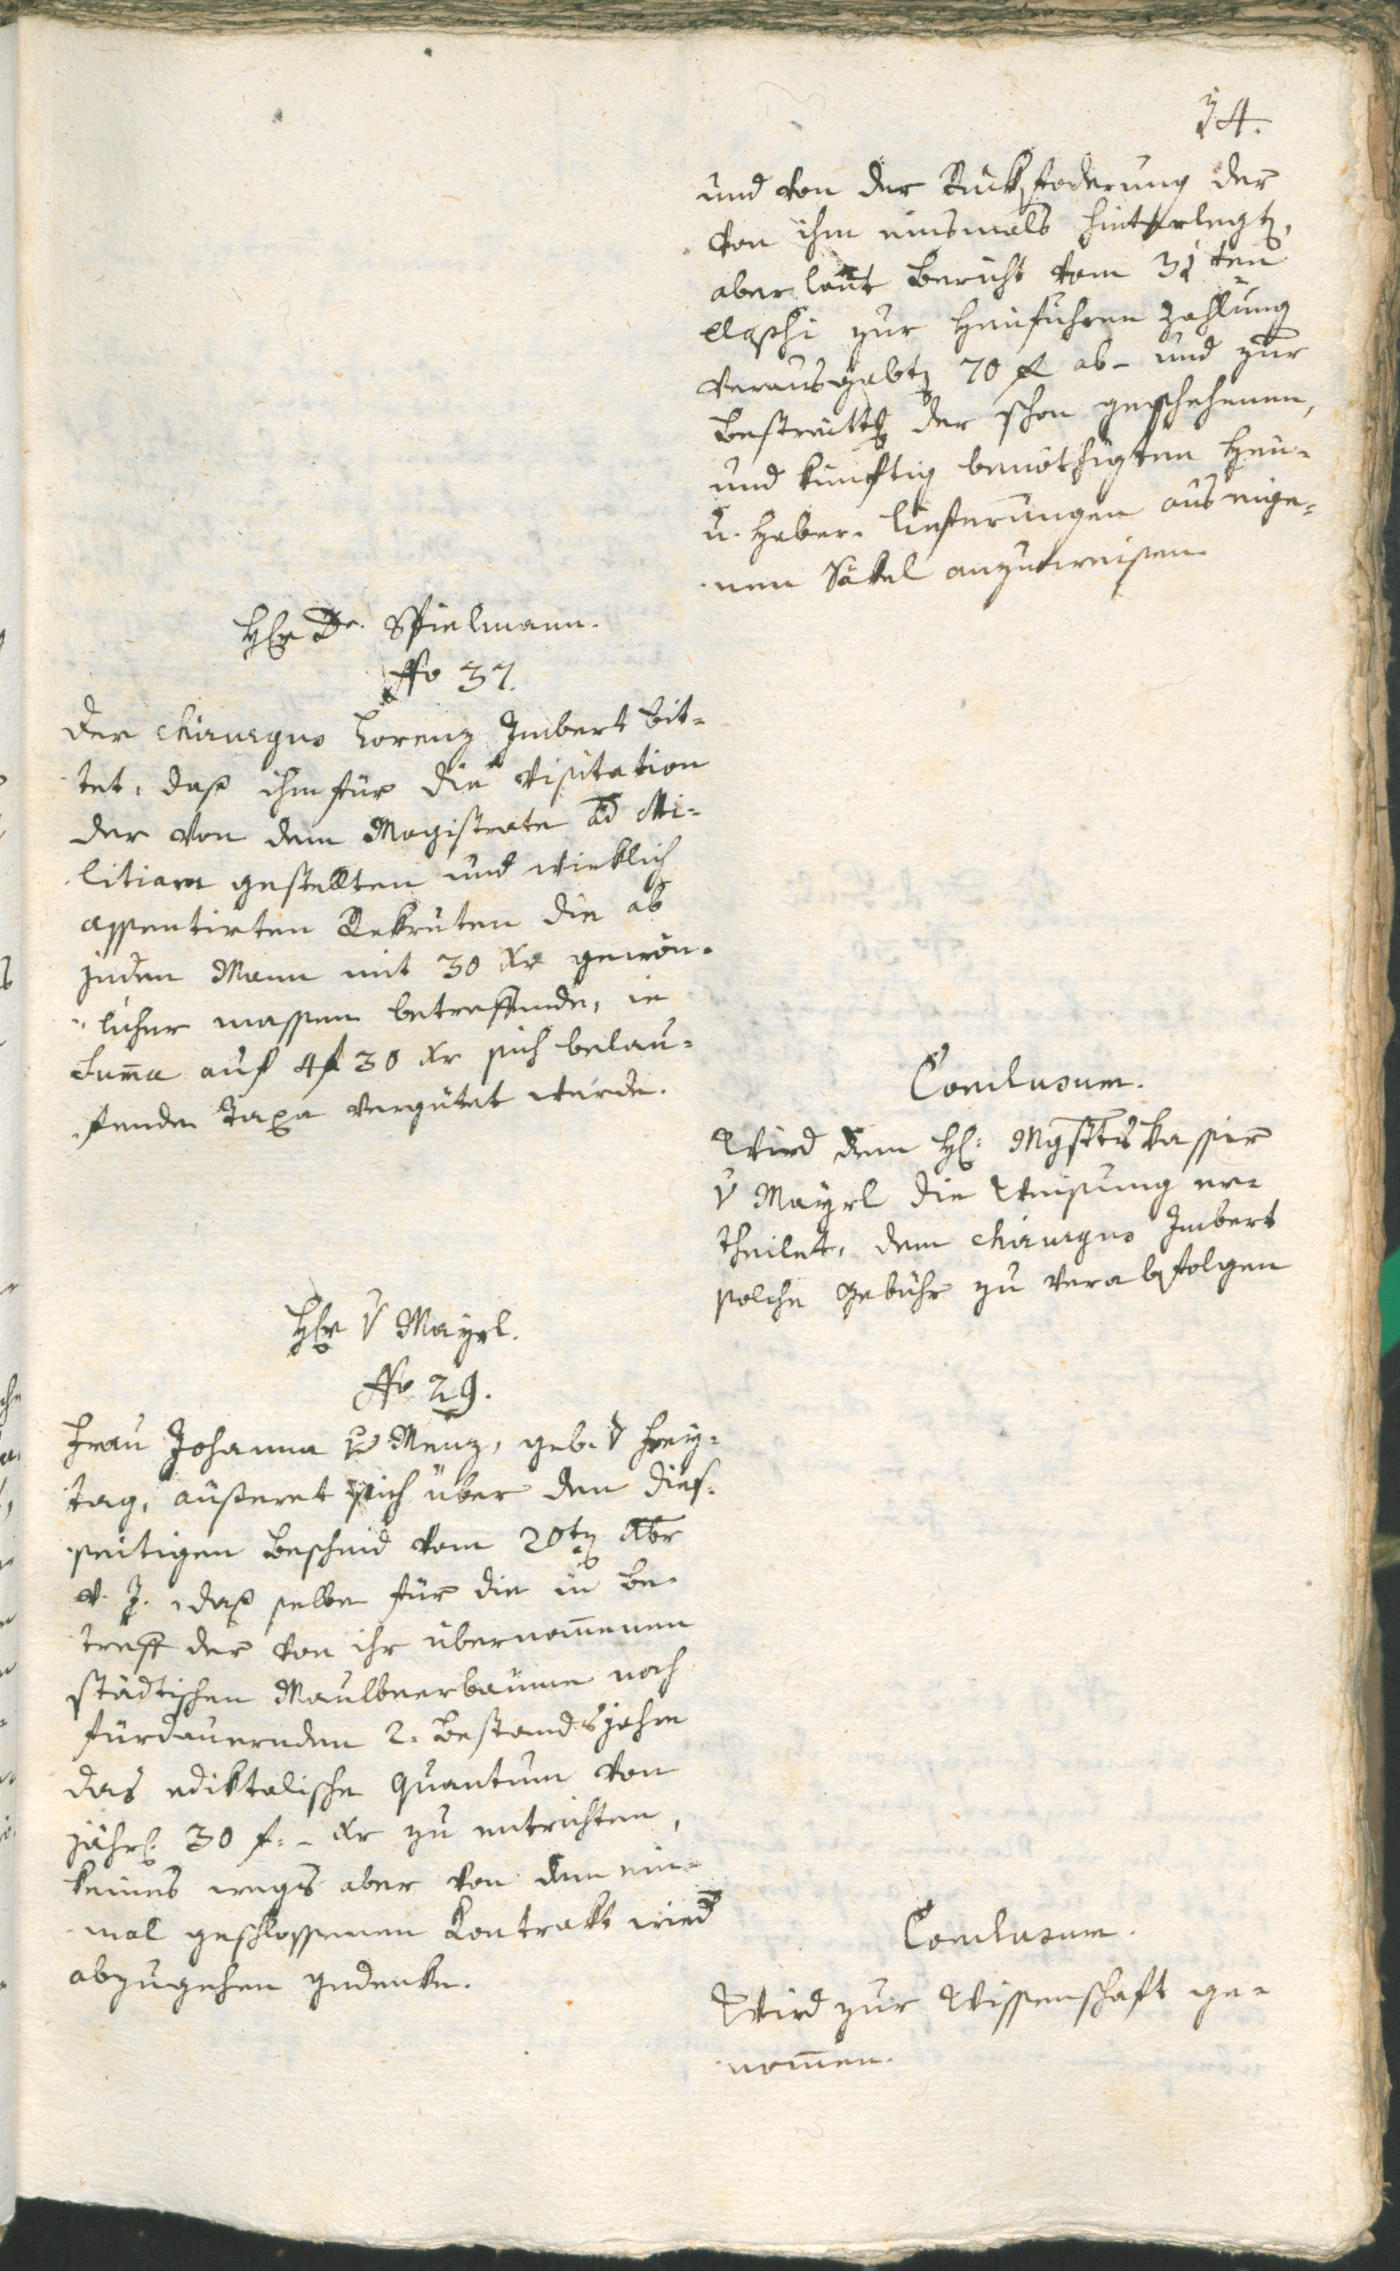 34.
und von der Rückfoderung der
von ihm einsmals hinterlegt,
aber laut Bericht vom 31ten
elapsi zur Heufuhren Zahlung
verausgabtē 70 f ab- und zur
Bestreittg der schon geschehenen,
und künftig benöthigten Heu-
u. Haber-lieferungen aus eige-
nem Säkel anzuweisen.
Hr Dr. Spielmann.
No 37.
Der Chirurgus Lorenz Imbert bit-
tet, daß ihm für die Visitation
der von dem Magistrate ad Mi-
litiam gestellten und wirklich
assentirten Rekruten die ab
jeden Mann mit 30 xr gewön-
licher massen betreffende, in
Suma auf 4 f 30 xr sich belau-
fende Taxa vergütet würde.
Conclusum.
Wird dem H: Mgstts Kassier
v Mayrl die Weisung er-
theilet, dem Chirurgus Imbert
solche Gebühr zu verabfolgen
Hr v Mayrl.
No 29.
Frau Johanna v Menz, geb. v Frey-
tag, äußeret sich über den dies-
seitigen Bescheid vom 20tē Xbr
v. J. daß selbe für die in Be-
treff der von ihr übernommenen
städtischen Maulbeerbäume noch
fürdauernden 2. Bestandsjahre
das ediktalische Quantum von
jährl: 30 f: - xr zu entrichten,
keines wegs aber von dem ein-
mal geschlossenen Kontrakt wied
abzugehen gedenke.
Conclusum.
Wird zur Wissenschaft ge-
nommen.